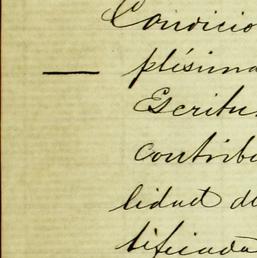 Condicio
plísima
Escritu
contribu
lidad de
tificada